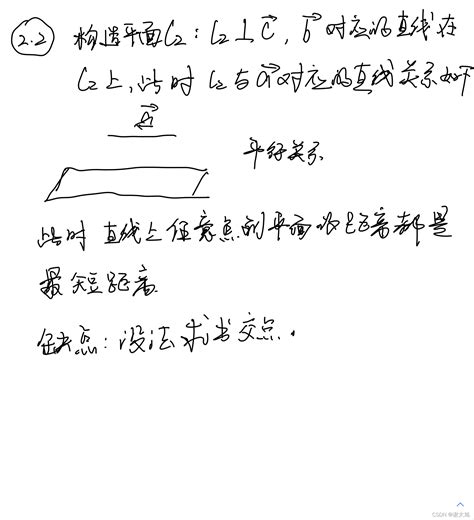 2.2 构造平面C₂:C₂⊥c⃗,b⃗对应的直线在
C₂上,此时C₂与a⃗对应的直线关系如下
a⃗
平行关系
此时直线上任意点到平面的距离都是
最短距离
缺点:没法求出交点.
CSDN @家大旭